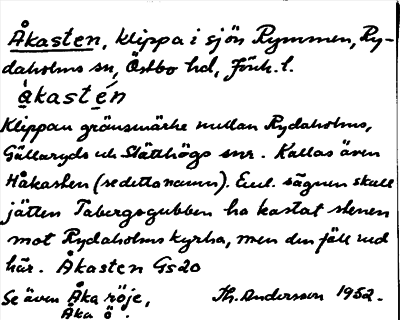 Åkasten, klippa i sjön Rymmen, Ry-
daholms sn, Östbo hd, Jönk. l.
åkastén
Klippan gränsmärke mellan Rydaholms,
Gällaryds och Slätthögs snr. Kallas även
Håkasten (se detta namn). Enl. sägnen skall
jätten Tabergsgubben ha kastat stenen
mot Rydaholms kyrka, men den föll ned
här. Åkasten Gs20
Se även Åka röje, Th. Andersson 1952.
Åka ö.